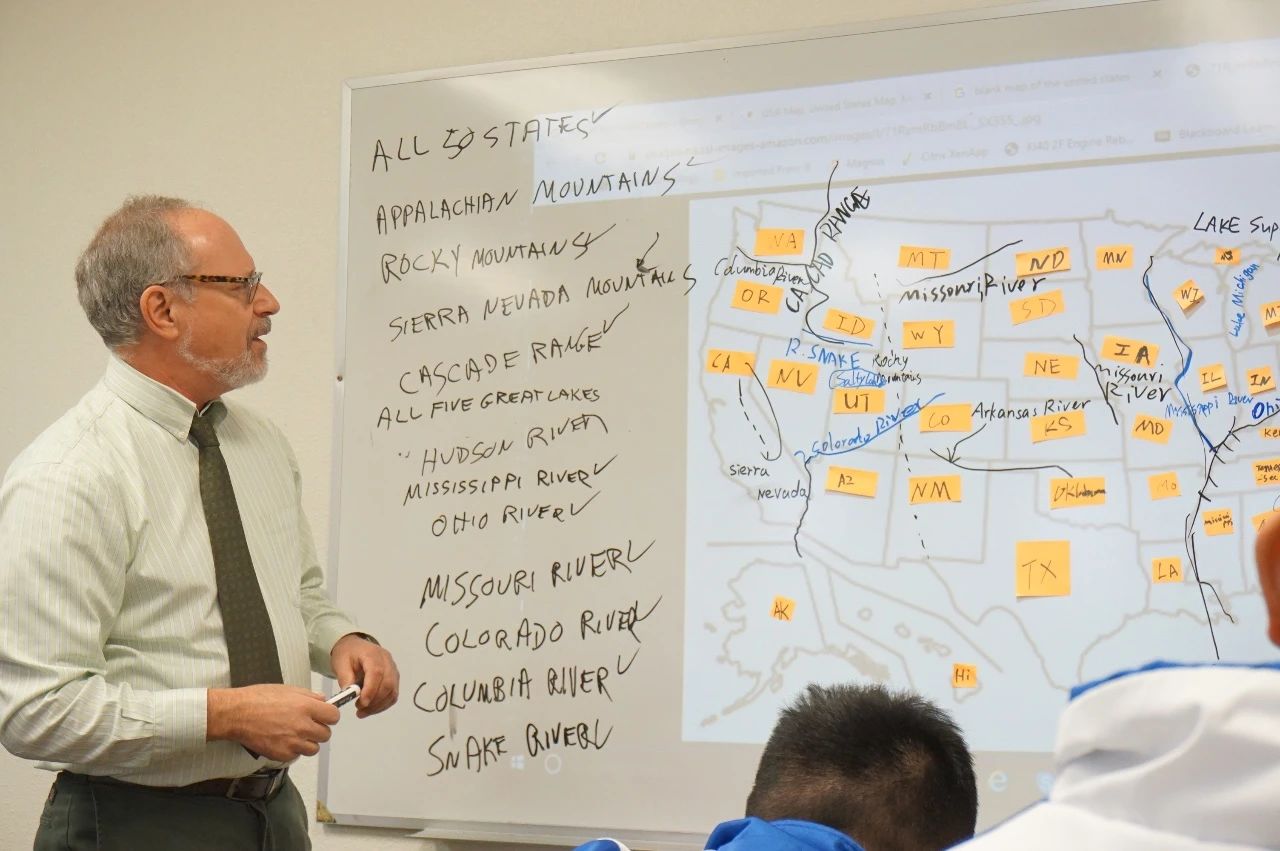 ALL 50 STATES
APPALACHIAN MOUNTAINS
ROCKY MOUNTAINS
SIERRA NEVADA MOUNTAINS
CASCADE RANGE
ALL FIVE GREAT LAKES
" HUDSON RIVER
MISSISSIPPI RIVER
OHIO RIVER
MISSOURI RIVER
COLORADO RIVER
COLUMBIA RIVER
SNAKE RIVER
USA Map, United States Map
blank map of the united states
Magnus
Citrix XenApp
FJ40 2F Engine Reb...
Blackboard Lear
RANGE
LAKE Sup
VA
MT
ND
MN
Columbia River
Missouri River
Lake Michigan
OR
ID
WY
SD
WI
R. SNAKE
Rocky
Mountains
CA
NV
UT
NE
IA
IL
IN
Missouri
River
Mississippi River
Ohi
Colorado River
CO
Arkansas River
KS
MD
Sierra
Nevada
AZ
NM
Oklahoma
Mo
TX
LA
AK
Hi